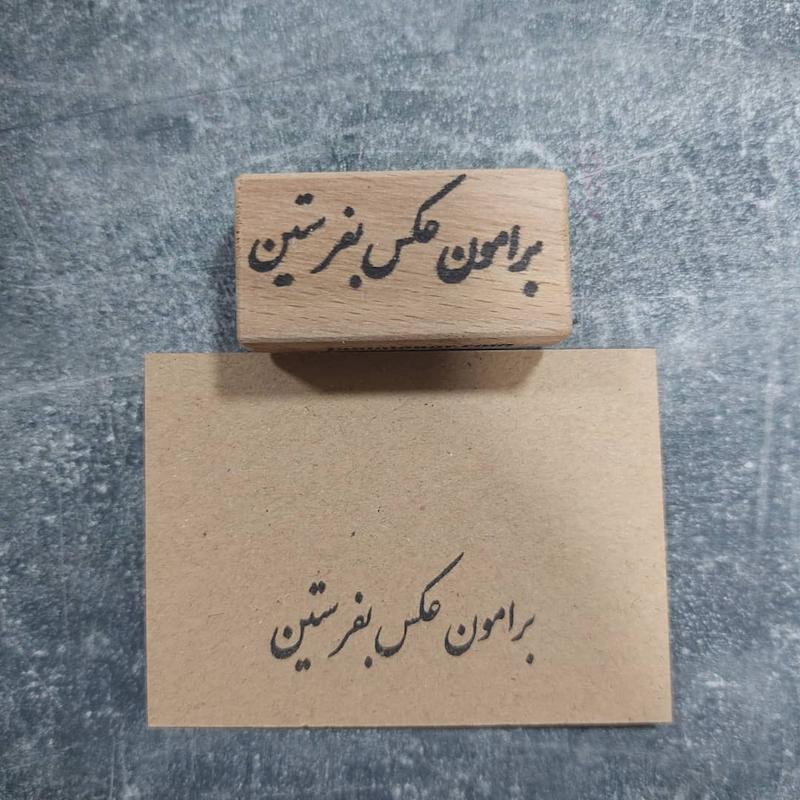 برامون عکس بفرستین
برامون عکس بفرستین